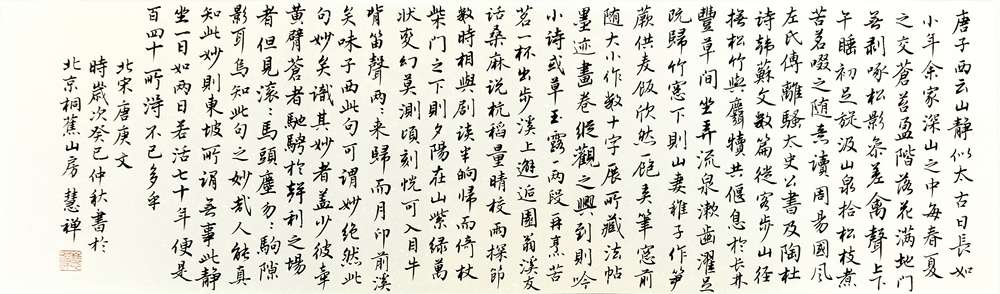 唐子西云山静似太古日長如
小年余家深山之中每春夏
之交蒼苔盈階落花满地門
無剥啄松影参差禽聲上下
午睡初足旋汲山泉拾松枝煮
苦茗啜之随意讀周易國風
左氏傳離騷太史公書及陶杜
诗韩蘇文數篇從容步山徑
撫松竹與麛犢共偃息於长林
豐草间坐弄流泉漱齒濯足
既歸竹窓下则山妻稚子作笋
蕨供麦饭欣然一飽弄筆窓前
随大小作數十字展所藏法帖
墨迹畫卷縱觀之興到则吟
小诗或草玉露一两段再烹苦
茗一杯出步溪上邂逅園翁溪友
话桑麻说杭稻量晴校雨探節
數時相與剧谈半晌歸而倚杖
柴门之下则夕陽在山紫绿萬
状变幻莫測頃刻恍可入目牛
背笛聲两:来歸而月印前溪
矣味子西此句可谓妙絶然此
句妙矣識其妙者蓋少彼牵
黄臂蒼者馳騁於聲利之場
者但見滚:馬頭塵匆:駒隙
影耳烏知此句之妙哉人能真
知此妙则東坡所谓無事此静
坐一日如两日若活七十年便是
百四十所得不已多乎
北宋唐庚文
時歲次癸已仲秋書於
北京桐蕉山房慧禅